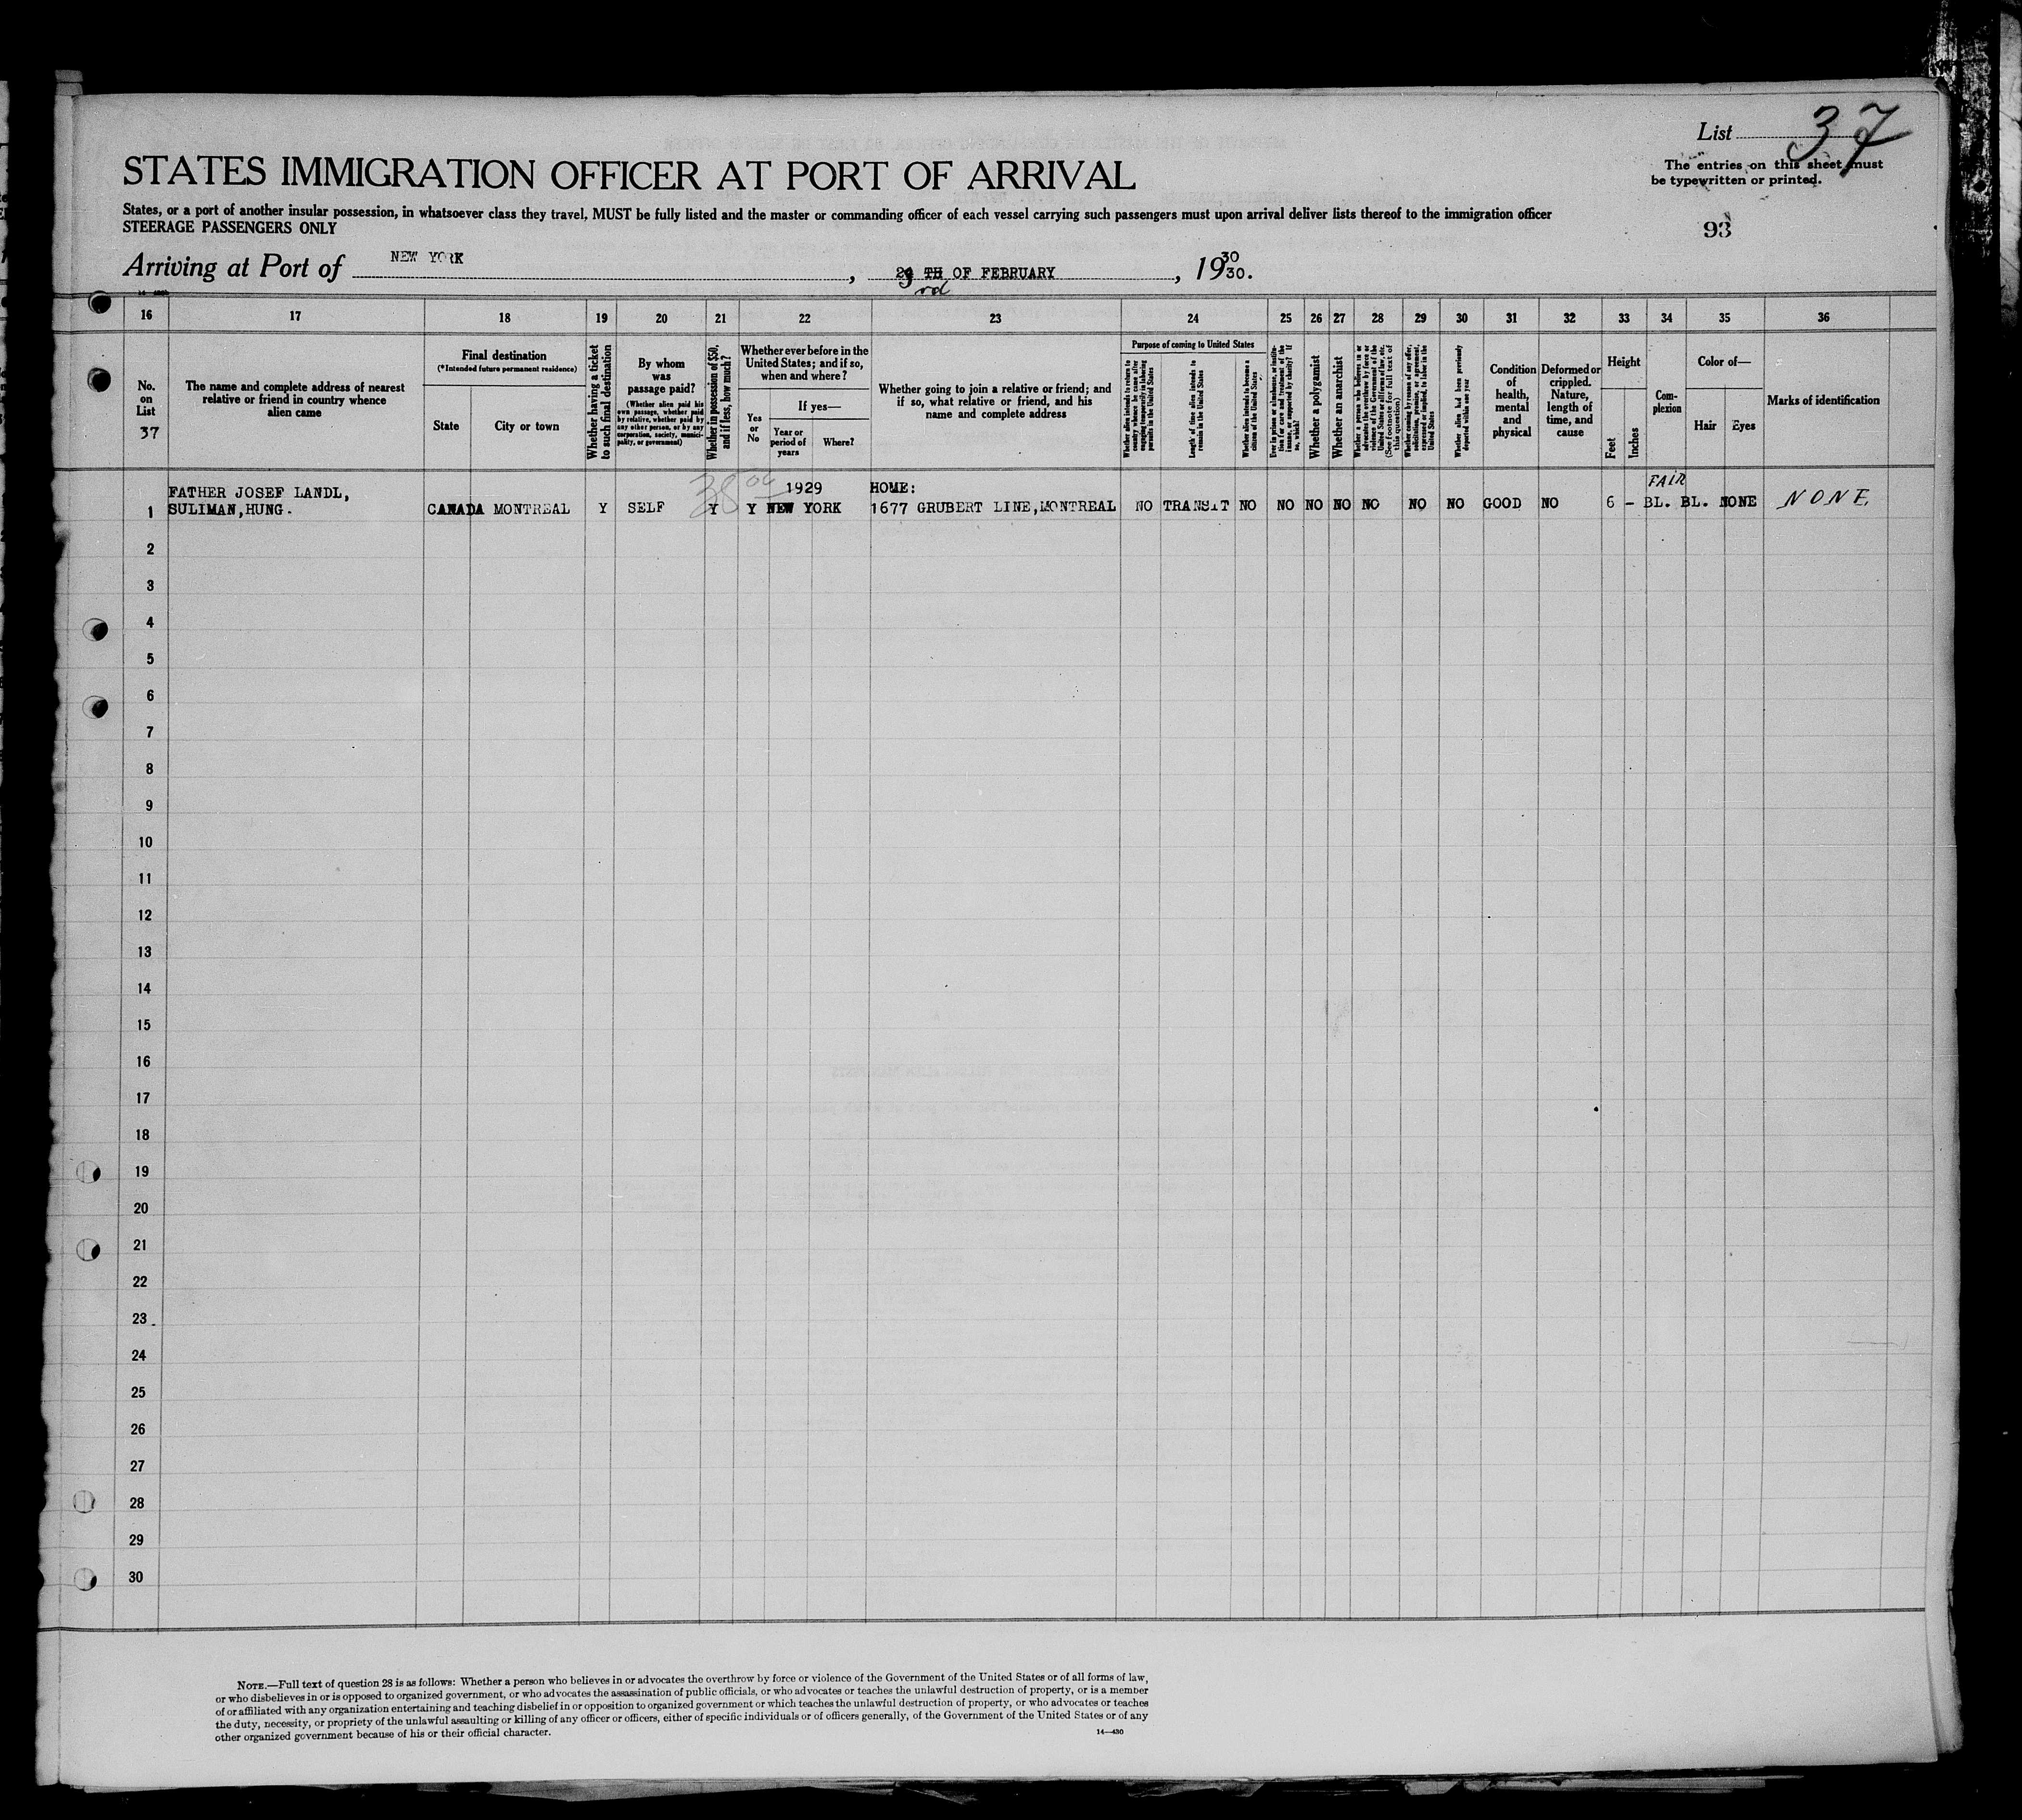 List 37
The entries on this sheet must
be typewritten or printed.
STATES IMMIGRATION OFFICER AT PORT OF ARRIVAL
States, or a port of another insular possession, in whatsoever class they travel, MUST be fully listed and the master or commanding officer of each vessel carrying such passengers must upon arrival deliver lists thereof to the immigration officer
STEERAGE PASSENGERS ONLY
93
Arriving at Port of NEW YORK, TH OF FEBRUARY, 19 30.
30
3rd
16 17 18 19 20 21 22 23 24 25 26 27 28 29 30 31 32 33 34 35 36
No.
on
List
37
The name and complete address of nearest
relative or friend in country whence
alien came
Final destination
(*Intended future permanent residence)
State
City or town
Whether having a ticket
to such final destination
By whom
was
passage paid?
(Whether alien paid his
own passage, whether paid
by relative, whether paid by
any other person, or by any
corporation, society, munici-
pality, or government)
Whether in possession of $50,
and if less, how much?
Whether ever before in the
United States; and if so,
when and where?
Yes
or
No
If yes—
Year or
period of
years
Where?
Whether going to join a relative or friend; and
if so, what relative or friend, and his
name and complete address
Purpose of coming to United States
Whether alien intends to return to
country whence he came after
engaging temporarily in laboring
pursuits in the United States
Length of time alien intends to
remain in the United States
Whether alien intends to become a
citizen of the United States
Ever in prison or almshouse, or institu-
tion for care and treatment of the
insane, or supported by charity? If
so, which?
Whether a polygamist
Whether an anarchist
Whether a person who believes in or
advocates the overthrow by force or
violence of the Government of the
United States or all forms of law, etc.
(See footnote for full text of
this question)
Whether coming by reason of any offer,
solicitation, promise, or agreement,
expressed or implied, to labor in the
United States
Whether alien had been previously
deported within one year
Condition
of
health,
mental
and
physical
Deformed or
crippled.
Nature,
length of
time, and
cause
Height
Feet
Inches
Com-
plexion
Color of—
Hair
Eyes
Marks of identification
FATHER JOSEF LANDL, 1929 HOME: FAIR
1 SULIMAN,HUNG. CANADA MONTREAL Y SELF Y Y NEW YORK 1677 GRUBERT LINE,MONTREAL NO TRANSIT NO NO NO NO NO NO NO GOOD NO 6 - BL. BL. NONE NONE
2
3
4
5
6
7
8
9
10
11
12
13
14
15
16
17
18
19
20
21
22
23
24
25
26
27
28
29
30
NOTE.—Full text of question 28 is as follows: Whether a person who believes in or advocates the overthrow by force or violence of the Government of the United States or of all forms of law,
or who disbelieves in or is opposed to organized government, or who advocates the assassination of public officials, or who advocates or teaches the unlawful destruction of property, or is a member
of or affiliated with any organization entertaining and teaching disbelief in or opposition to organized government or which teaches the unlawful destruction of property, or who advocates or teaches
the duty, necessity, or propriety of the unlawful assaulting or killing of any officer or officers, either of specific individuals or of officers generally, of the Government of the United States or of any
other organized government because of his or their official character.
14—430